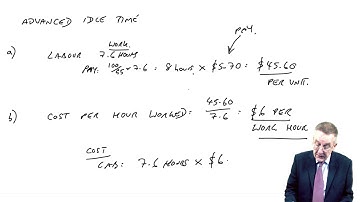 ADVANCED IDLE TIME
PAY.
a) LABOUR WORK 7.6 HOURS
PAY: 100/95 x 7.6 = 8 hours x $5.70 = $45.60 PER UNIT.
b) COST PER HOUR WORKED = 45.60/7.6 = $6 PER WORK HOUR
COST
CARD: 7.6 HOURS x $6.